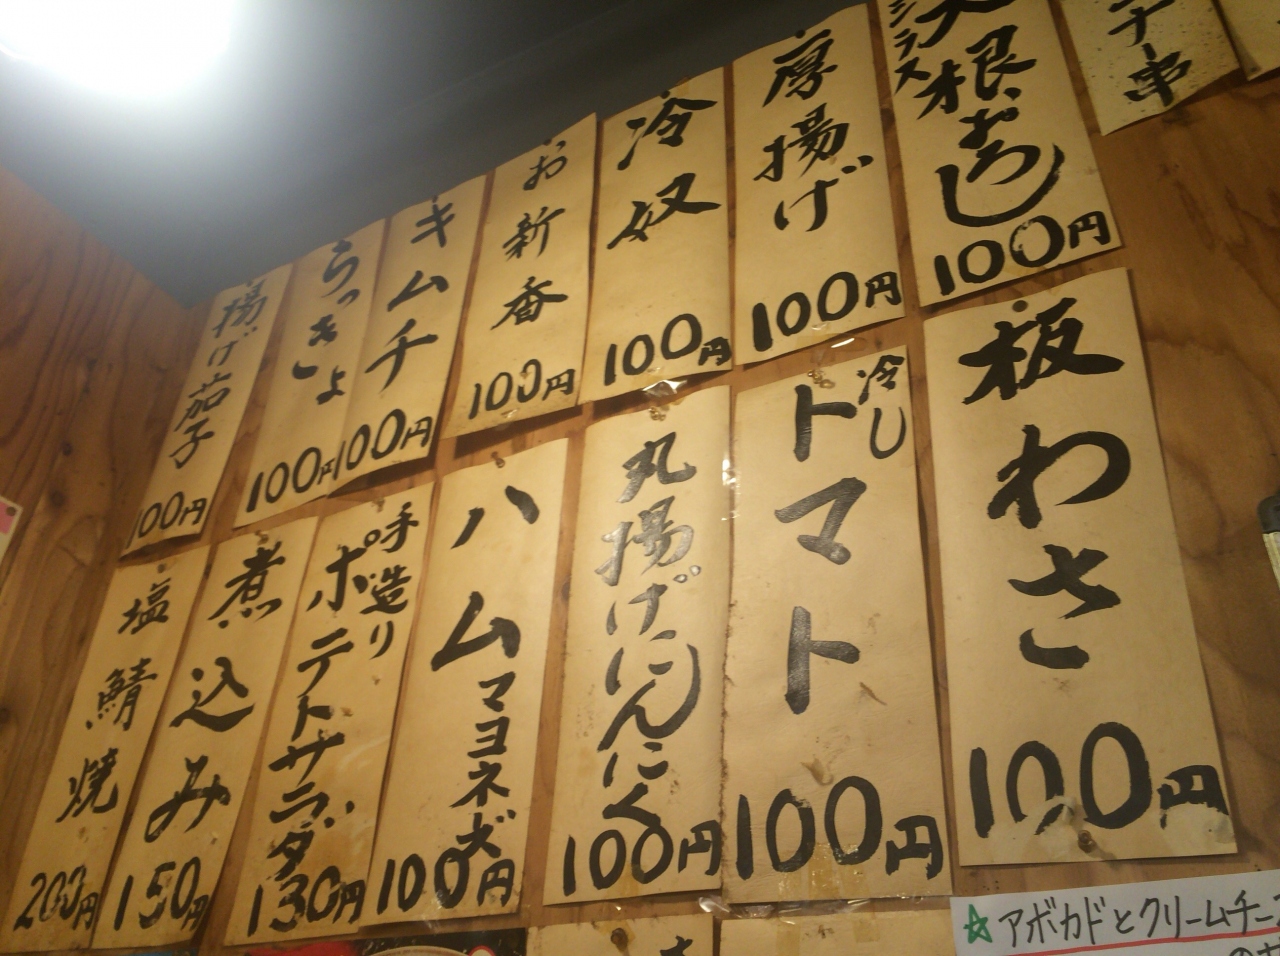 チ串
シラス
大根おろし
100円
厚揚げ
100円
冷奴
100円
お新香
100円
キムチ
100円
らっきょ
100円
揚げ茄子
100円
板わさ
100円
冷し
トマト
100円
丸揚げにんにく
100円
ハム
マヨネーズ
100円
手造り
ポテトサラダ
130円
煮込み
150円
塩鯖焼
200円
☆アボカドとクリームチー